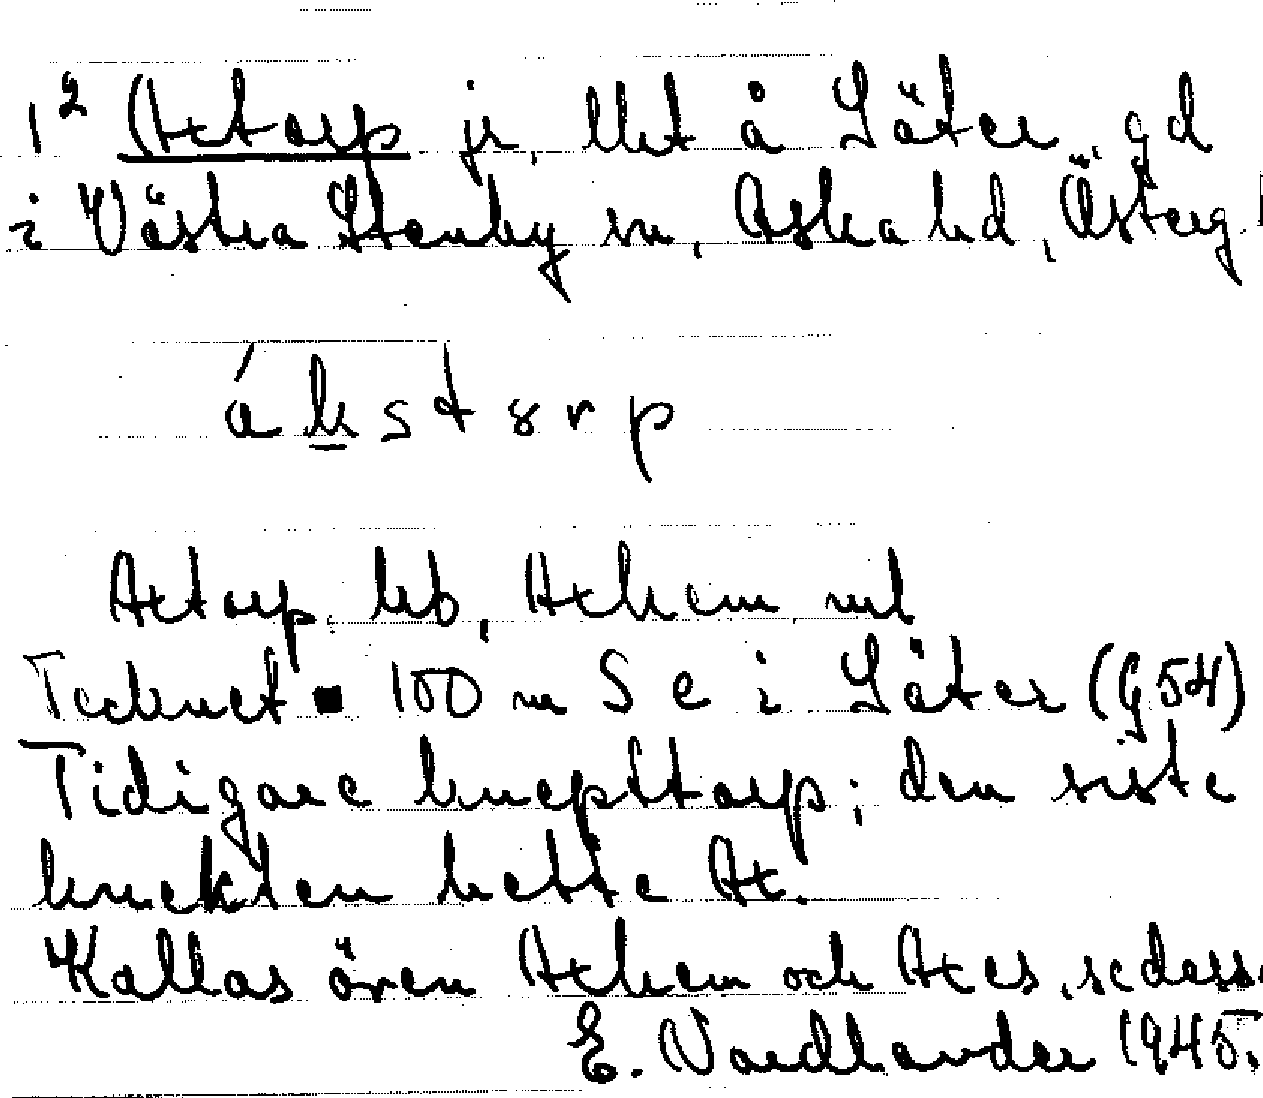 1² Axtorp jr, lht å Säter, gd
i Västra Stenby sn, Aska hd, Österg.
ákstorp
Axtorp hb, Axhem mb
Tecknet ■ 100 m S e i Säter (G54)
Tidigare knekttorp; den siste
knekten hette Ax.
Kallas även Axhem och Axes, se dess.
E. Vardlander 1945.